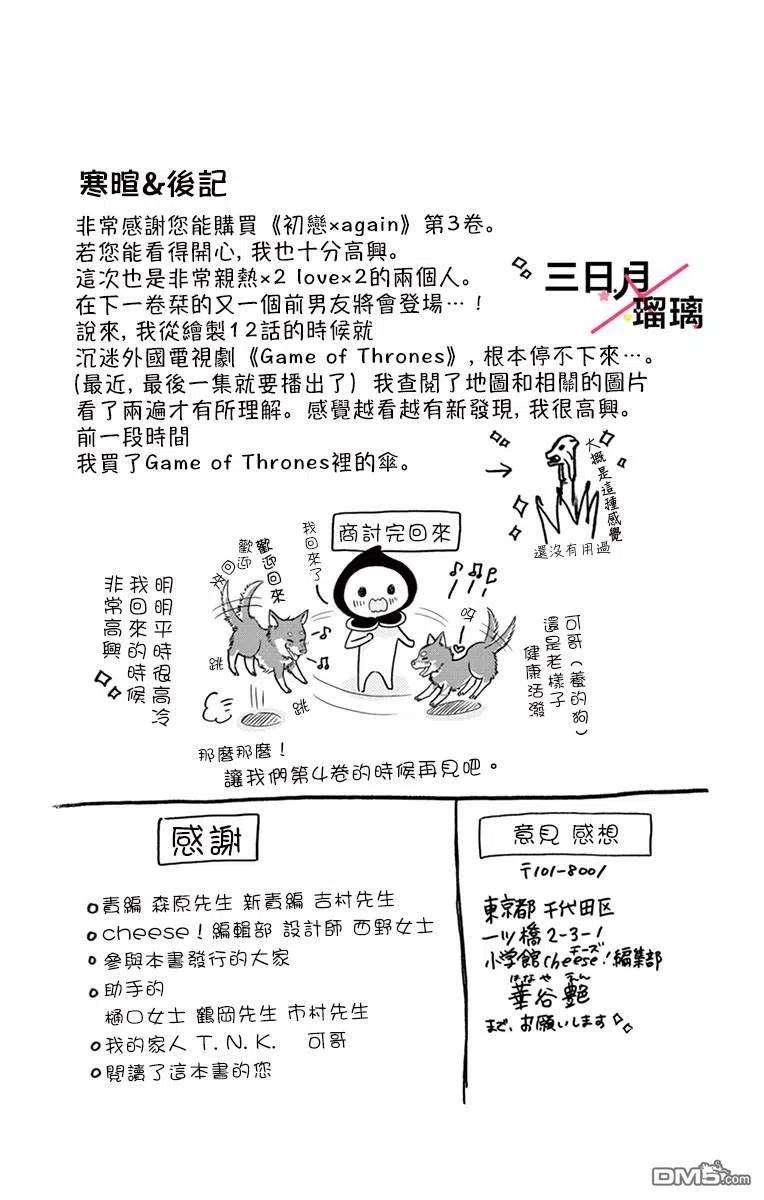 寒暄&後記
非常感謝您能購買《初戀×again》第3卷。
若您能看得開心, 我也十分高興。
這次也是非常親熱×2 love×2的兩個人。
在下一卷栞的又一個前男友將會登場…！
說來, 我從繪製12話的時候就
沉迷外國電視劇《Game of Thrones》, 根本停不下來…。
(最近, 最後一集就要播出了) 我查閱了地圖和相關的圖片
看了兩遍才有所理解。感覺越看越有新發現, 我很高興。
前一段時間
我買了Game of Thrones裡的傘。
三日月
瑠璃
大概是這種感覺
還沒有用過
商討完回來
我回來了
歡迎回來
歡迎
呀
跳
跳
明明平時很高冷
我回來的時候
非常高興
可哥(養的狗)
還是老樣子
健康活潑
那麼那麼！
讓我們第4卷的時候再見吧。
感謝
責編 森原先生 新責編 吉村先生
cheese！編輯部 設計師 西野女士
參與本書發行的大家
助手的
樋口女士 鶴岡先生 市村先生
我的家人 T. N. K. 可哥
閱讀了這本書的您
意見 感想
〒101-8001
東京都 千代田区
一ツ橋2-3-1
チーズ
小学館Cheese!編集部
はなや えん
華谷艶
まで、お願いします
DM5.com